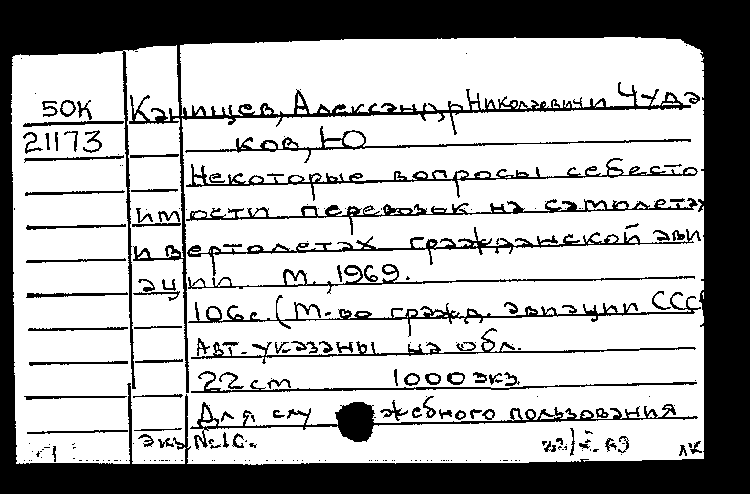 50К Канищев, Александр Николаевич и Чуда-
21173 ков, Ю
Некоторые вопросы себесто-
имости перевозок на самолетах
и вертолетах гражданской ави-
ации. М., 1969.
106с. (М-во гражд. авиации СССР)
Авт. указаны на обл.
22 см 1000 экз
Для служебного пользования
экз №10.